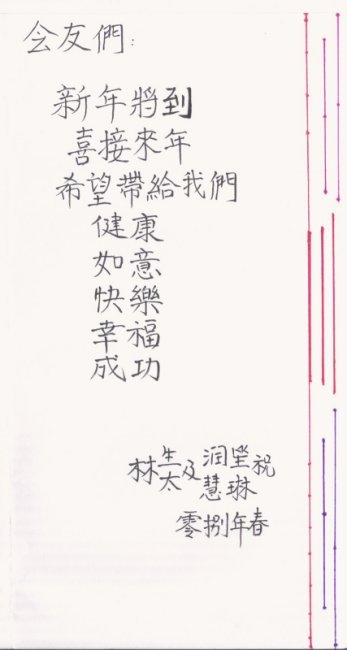 会友們:
新年將到
喜接來年
希望帶給我們
健康
如意
快樂
幸福
成功
林生太及润堃慧琳祝
零捌年春